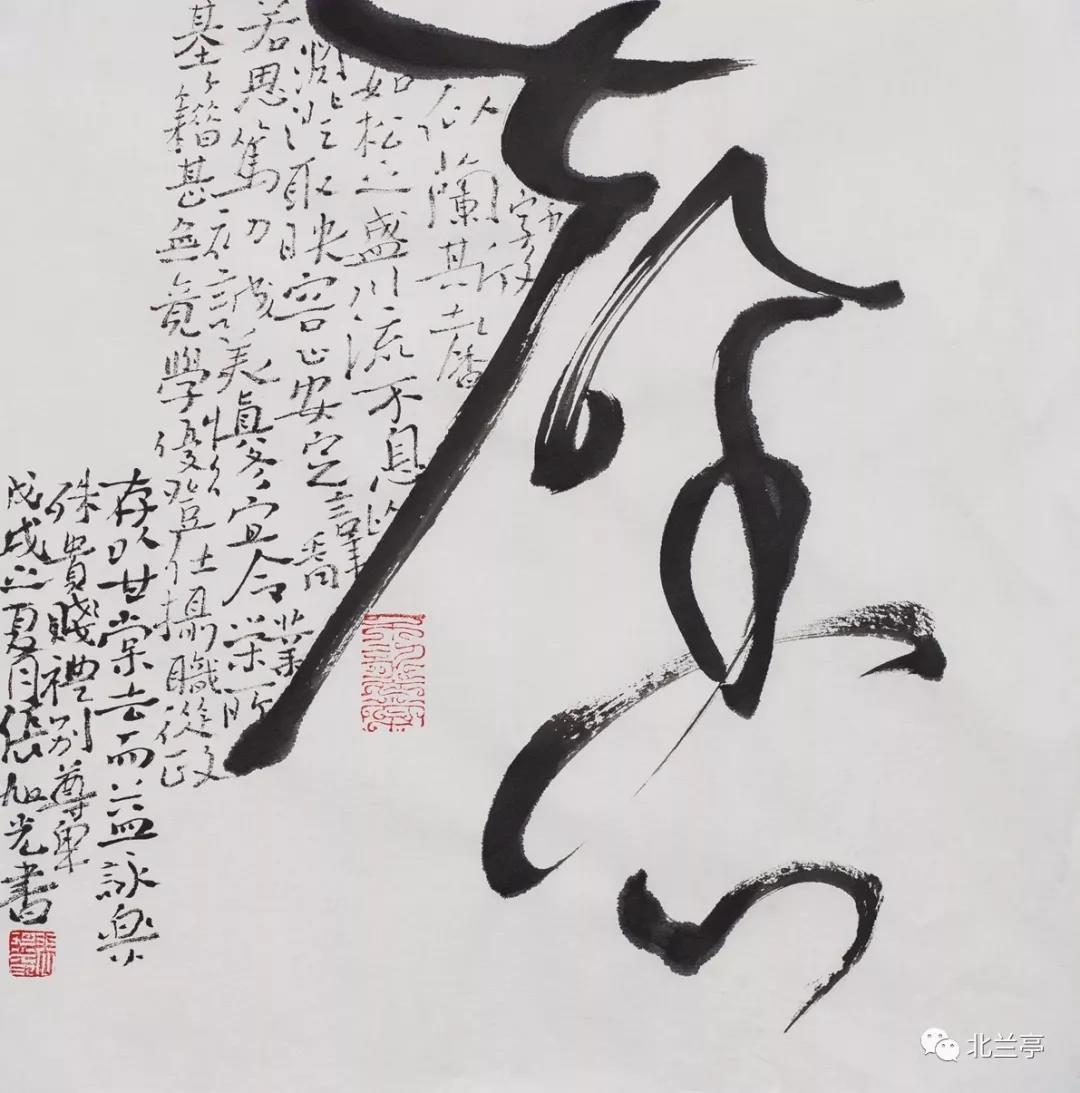 似蘭斯馨
如松之盛川流不息
淵澄取映容止安定言辭
若思篤初誠美慎終宜令榮業所
基籍甚無竟學優登仕攝職從政
存以甘棠去而益詠樂
殊貴賤禮別尊卑
戊戌之夏月張旭光書
北兰亭